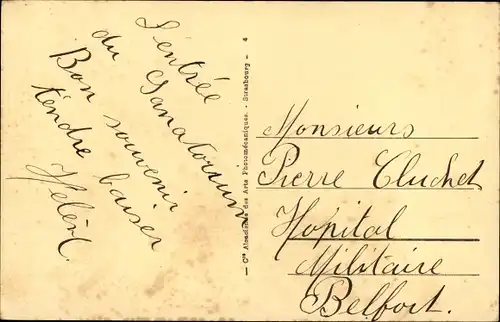 L'entrée
du Sanatorium
Bon souvenir
tendre baiser
Hélène
— Cie Alsacienne des Arts Photomécaniques. - Strasbourg — 4
Monsieurs
Pierre Cluchet
Hopital
Militaire
Belfort.